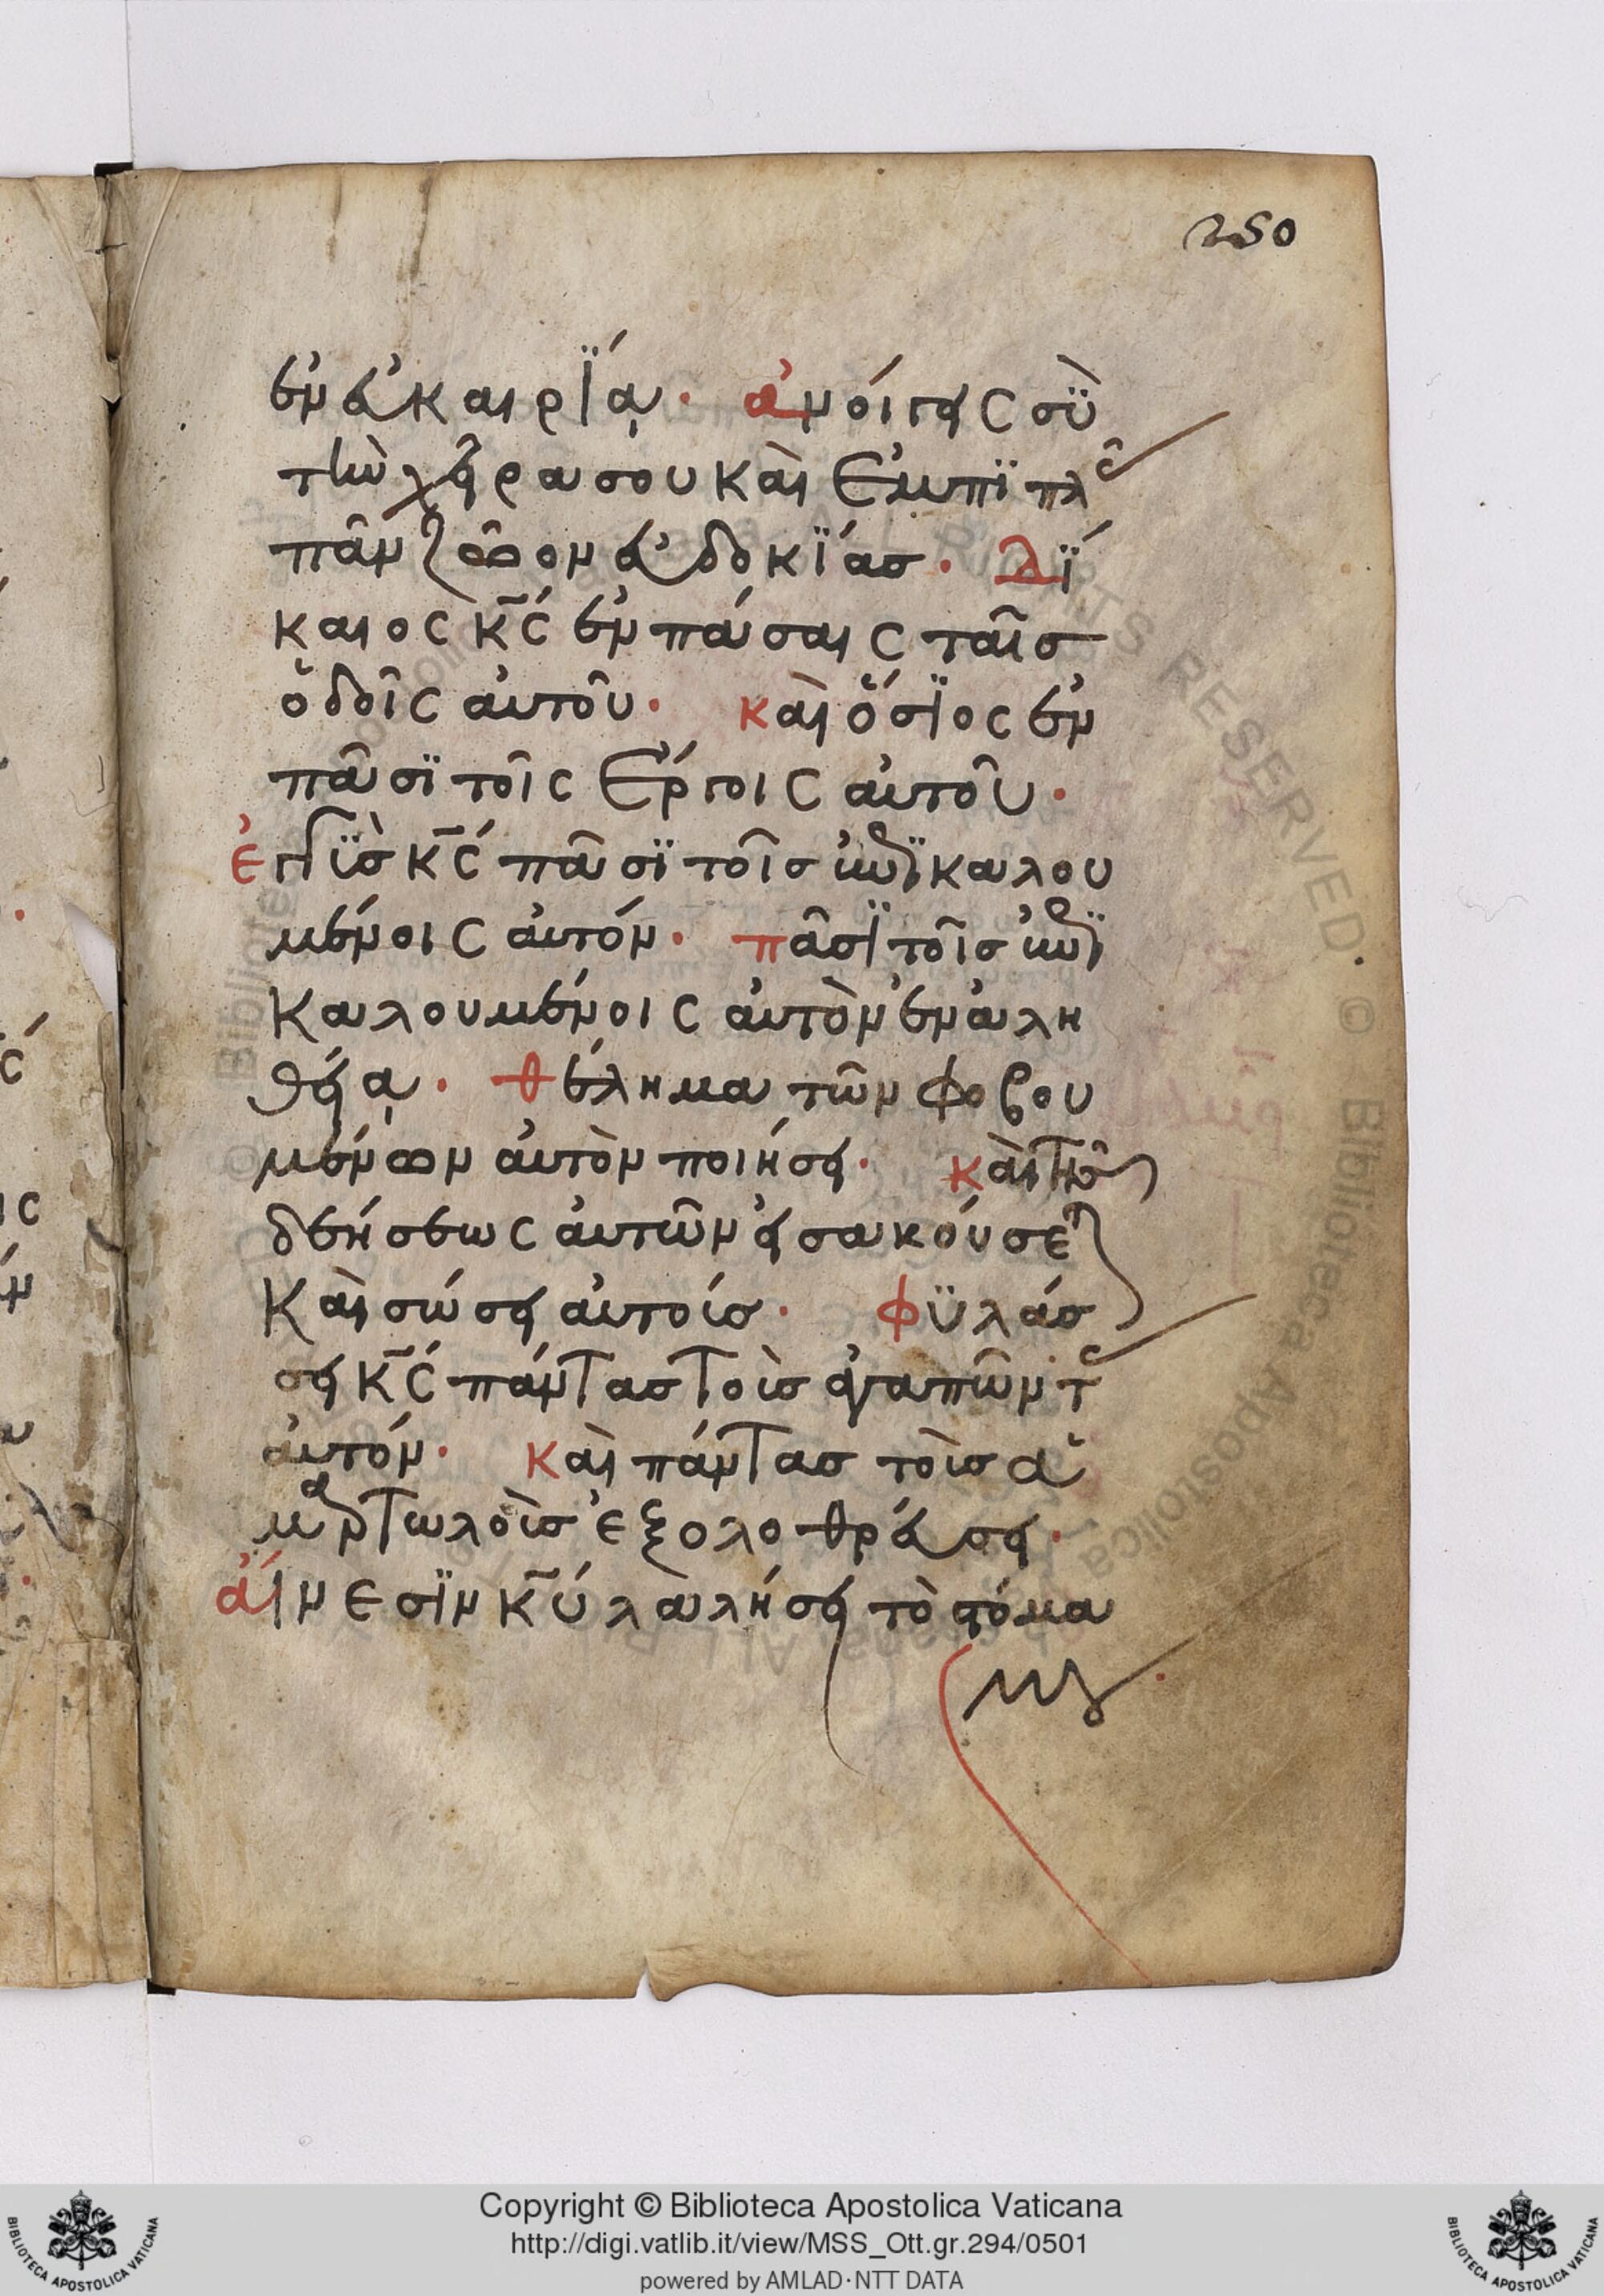 250
ἐν εὐκαιρίᾳ· ἀνοίγεις σὺ
τὴν χεῖρα σου καὶ ἐμπιπλᾶς
πᾶν ζῶον εὐδοκίας· Δί
καιος κς ἐν πάσαις ταῖς
ὁδοῖς αὐτοῦ· καὶ ὅσιος ἐν
πᾶσι τοῖς ἔργοις αὐτοῦ·
ἐγγὺς κς πᾶσι τοῖς ἐπικαλου
μένοις αὐτόν· πᾶσι τοῖς ἐπι
καλουμένοις αὐτὸν ἐν ἀλη
θείᾳ· θέλημα τῶν φοβου
μένων αὐτὸν ποιήσει· καὶ τῆς
δεήσεως αὐτῶν εἰσακούσε
καὶ σώσει αὐτούς· φυλάσ
σει κς πάντας τοὺς ἀγαπῶντ
αὐτόν· καὶ πάντας τοὺς ἁ
μαρτωλοὺς ἐξολοθρεύσει·
αἴνεσιν κυ λαλήσει τὸ στόμα
μου·
Copyright © Biblioteca Apostolica Vaticana
http://digi.vatlib.it/view/MSS_Ott.gr.294/0501
powered by AMLAD·NTT DATA
BIBLIOTECA APOSTOLICA VATICANA
BIBLIOTECA APOSTOLICA VATICANA